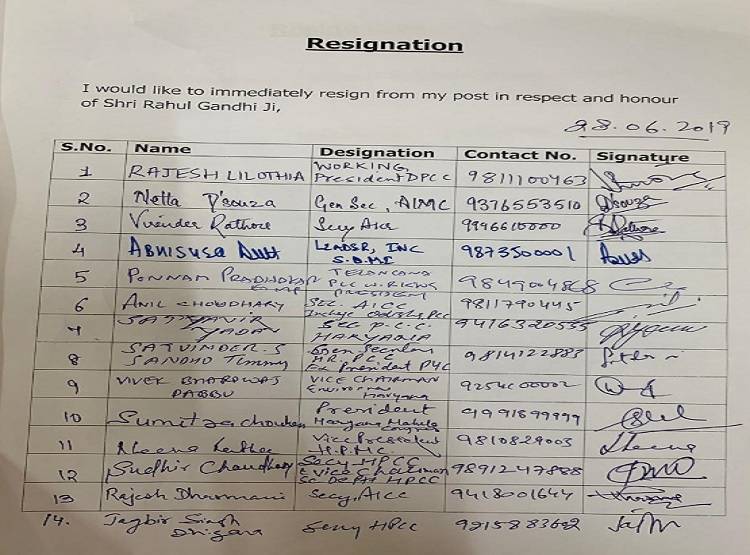 Resignation
I would like to immediately resign from my post in respect and honour
of Shri Rahul Gandhi Ji,
28.06.2019
S.No. Name Designation Contact No. Signature
1 RAJESH LILOTHIA WORKING, President DPCC 9811100463
2 Netta D'souza Gen Sec, AIMC 9376553510 Dsouza
3 Virender Rathore Secy AICC
4 LEADER, INC 9873500001
5 PONNAM PRABHAKAR TELANGANA PCC W.
PRESIDENT
6 ANIL CHOUDHARY SEC. AICC 9811790445
Odisha PCC
7 SATYAVIR YADAV SEC P.C.C. HARYANA 9416320555
8 SATVINDER.S SANDHU Timmy HR. PCC
Ex President PYC 9814122883
9 VIVEK BHARDWAJ VICE CHAIRMAN Haryana
10 Sumitra Chouhan President Haryana Mahila Congress 9991899999
11 Vice President H.P.M.C. 9810829003
12 Sudhir Chaudhary Secy HPCC & Vice Chairman SC HPCC 9891247888
13 Rajesh Dharmani Secy, AICC 9418001644
14. Jagbir Singh Secy HPCC